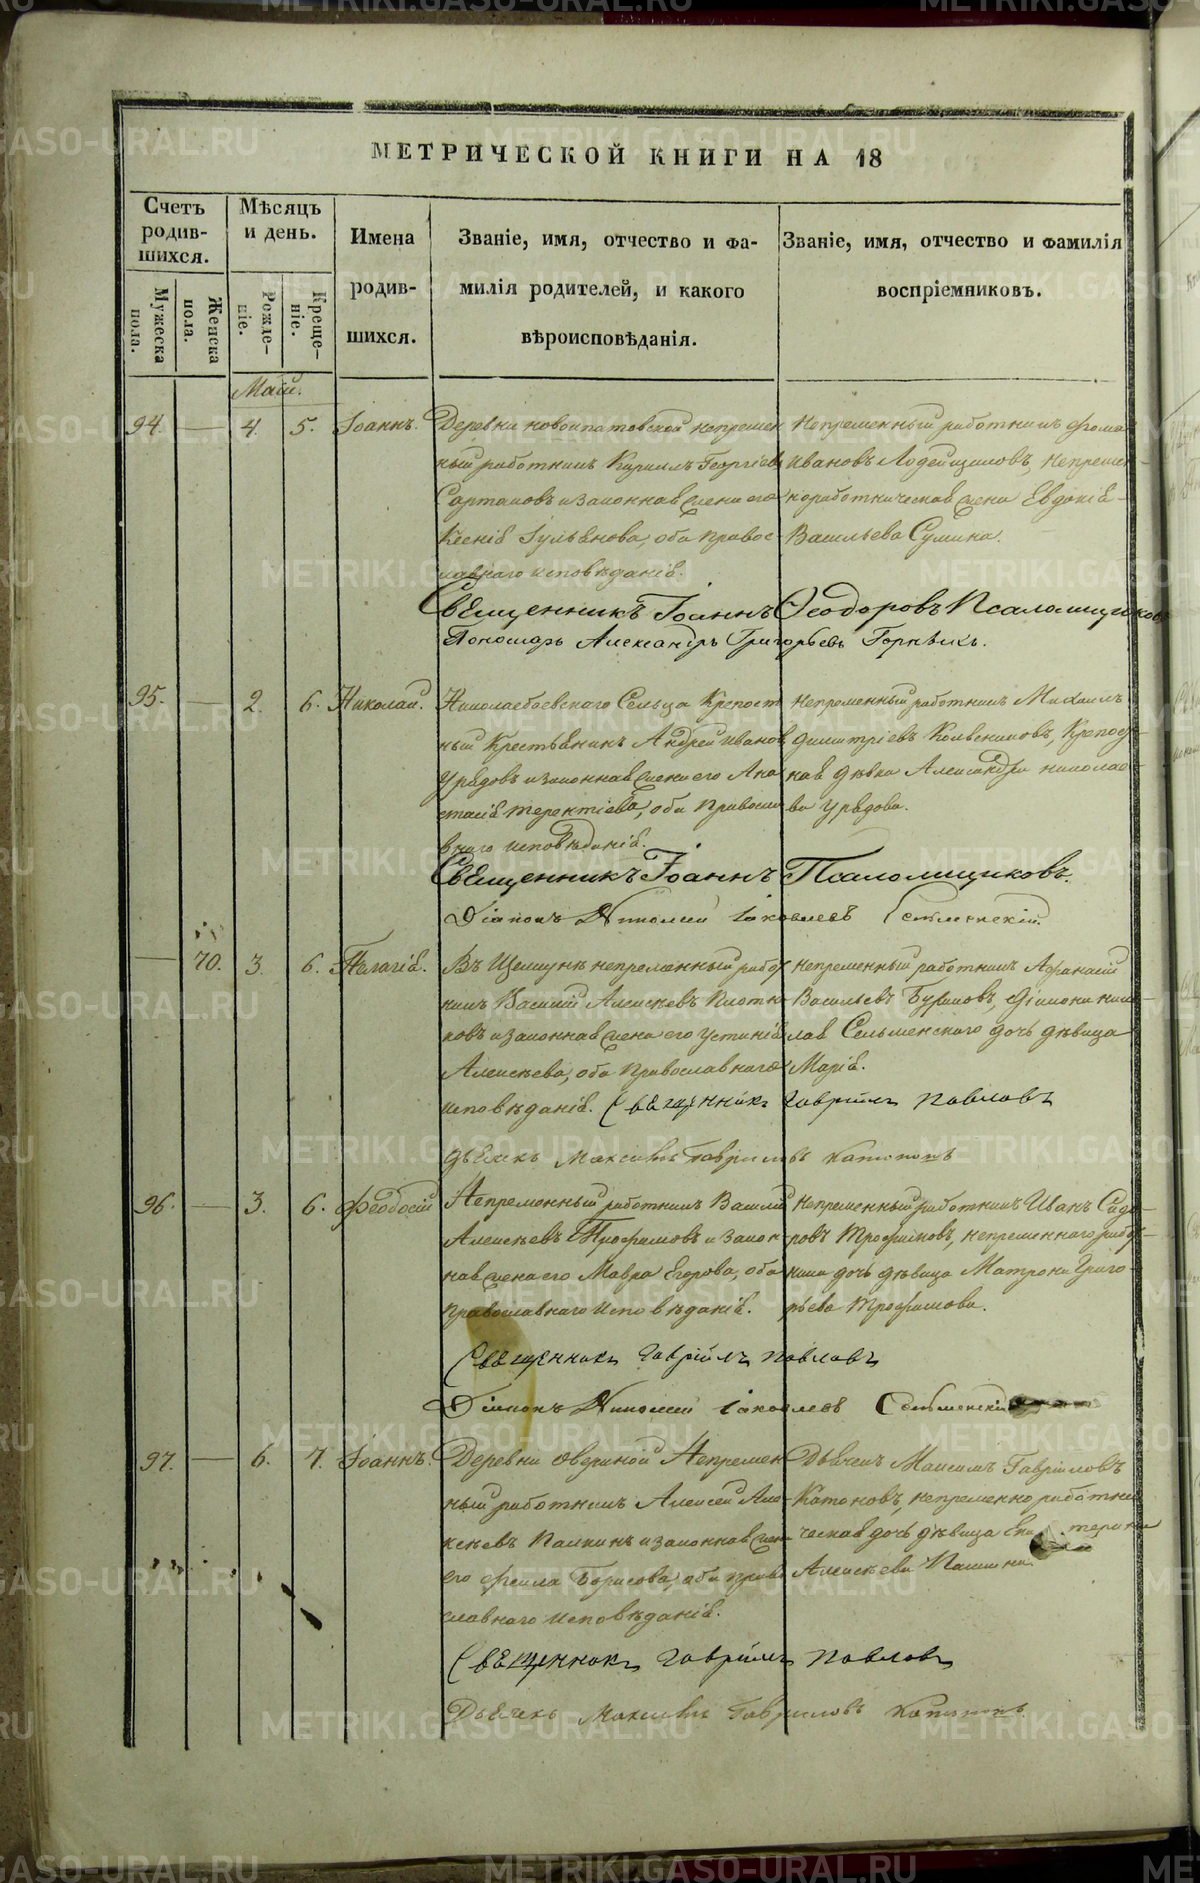 МЕТРИЧЕСКОЙ КНИГИ НА 18
Счетъ родив-шихся.
Мѣсяцъ и день.
Имена родив-шихся.
Званіе, имя, отчество и фа-милія родителей, и какого вѣроисповѣданія.
Званіе, имя, отчество и фамилія воспріемниковъ.
Мужеска пола.
Женска пола.
Рожде-ніе.
Креще-ніе.
Маій.
94. — 4. 5. Іоаннъ.
Деревни новоипатовской непремен
ный работникъ Кириллъ Георгіевъ
Сартаковъ и законная жена его
Ксенія Іульянова, оба Правос-
лавнаго исповѣданія.
Непременный работникъ Фома
Ивановъ Лодейщиковъ, непремен-
но работническая жена Евдокія
Васильева Сумина.
Священникъ Іоаннъ Ѳеодоровъ Псаломщиковъ
Пономарь Александръ Григорьевъ
95. — 2. 6. Николай.
Николаевскаго Сельца Крепост
ный Крестьянинъ Андрей Ивановъ
Урядовъ и законная жена его Ана
стасія Терентіева, оба Правосла
внаго исповѣданія.
Непременный работникъ Михаилъ
Димитріевъ Колясниковъ, Крепост-
ная дѣвка Александра Николае
ва Урядова.
Священникъ Іоаннъ Псаломщиковъ.
Діаконъ Николай Іаковлевъ Сельменскій.
— 70. 3. 6. Пелагія.
Въ Щелкунѣ непременный работ
никъ Василій Алексѣевъ Плотни-
ковъ и законная жена его Устинія
Алексѣева, оба Православнаго
исповѣданія.
Непременный работникъ Афанасій
Васильевъ Бурмовъ, Діакона Нико-
лая Сельменскаго дочь дѣвица
Марія.
Священникъ Гавріилъ Павловъ
Дьячекъ Максимъ Гавриловъ Катоновъ
96. — 3. 6. Феодосій
Непременный работникъ Василій
Алексѣевъ Трофимовъ и закон-
ная жена его Мавра Егорова, оба
Православнаго исповѣданія.
Непременный работникъ Иванъ Сидо-
ровъ Трофимовъ, непременнаго работ-
ника дочь дѣвица Матрона Григо-
рьева Трофимова.
Священникъ Гавріилъ Павловъ
Діаконъ Николай Іаковлевъ Сельменскій
97. — 6. 7. Іоаннъ.
Деревни Авериной Непремен
ный работникъ Алексей Але-
ксѣевъ Палкинъ и законная жена
его Ѳекла Борисова, оба Право
славнаго исповѣданія.
Дьячекъ Максимъ Гавріиловъ
Катоновъ, непременно работни
ческая дочь дѣвица Екатерина
Алексѣева Палкина.
Священникъ Гавріилъ Павловъ
Дьячекъ Максимъ Гавриловъ Катоновъ
METRIKI.GASO-URAL.RU